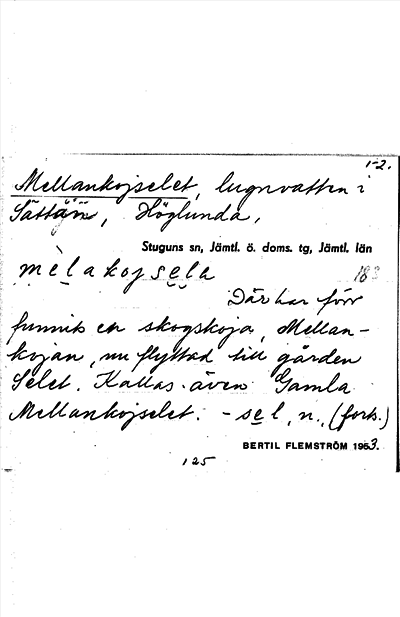 1-2.
Mellankojselet, lugnvatten i
Sättån, Höglunda,
Stuguns sn, Jämtl. ö. doms. tg, Jämtl. län
mèlakojsela
18
Där har förr
funnits en skogskoja, Mellan-
kojan, nu flyttad till gården
Selet. Kallas även Gamla
Mellankojselet. - sel, n., (forts.)
BERTIL FLEMSTRÖM 1953.
125